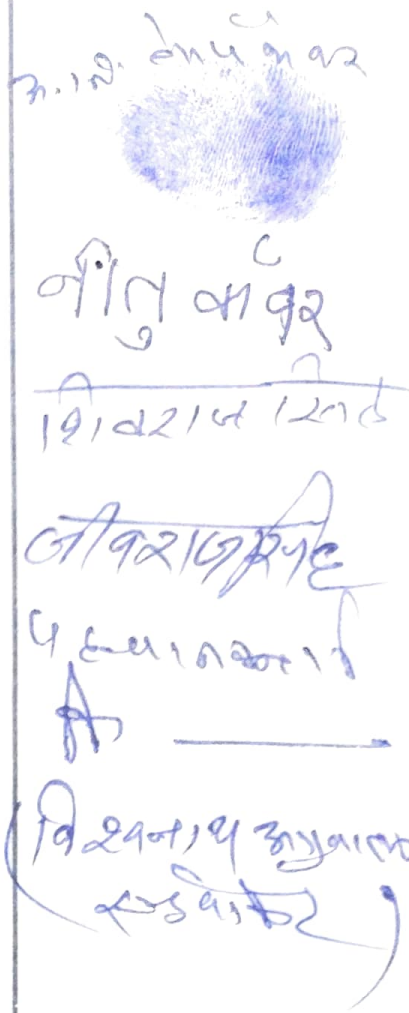 अ. नि.
नीतु कंवर
शिवराज सिंह
जीवराजसिंह
पहचानकर्ता
(विश्वनाथ अग्रवाल
एडवोकेट)